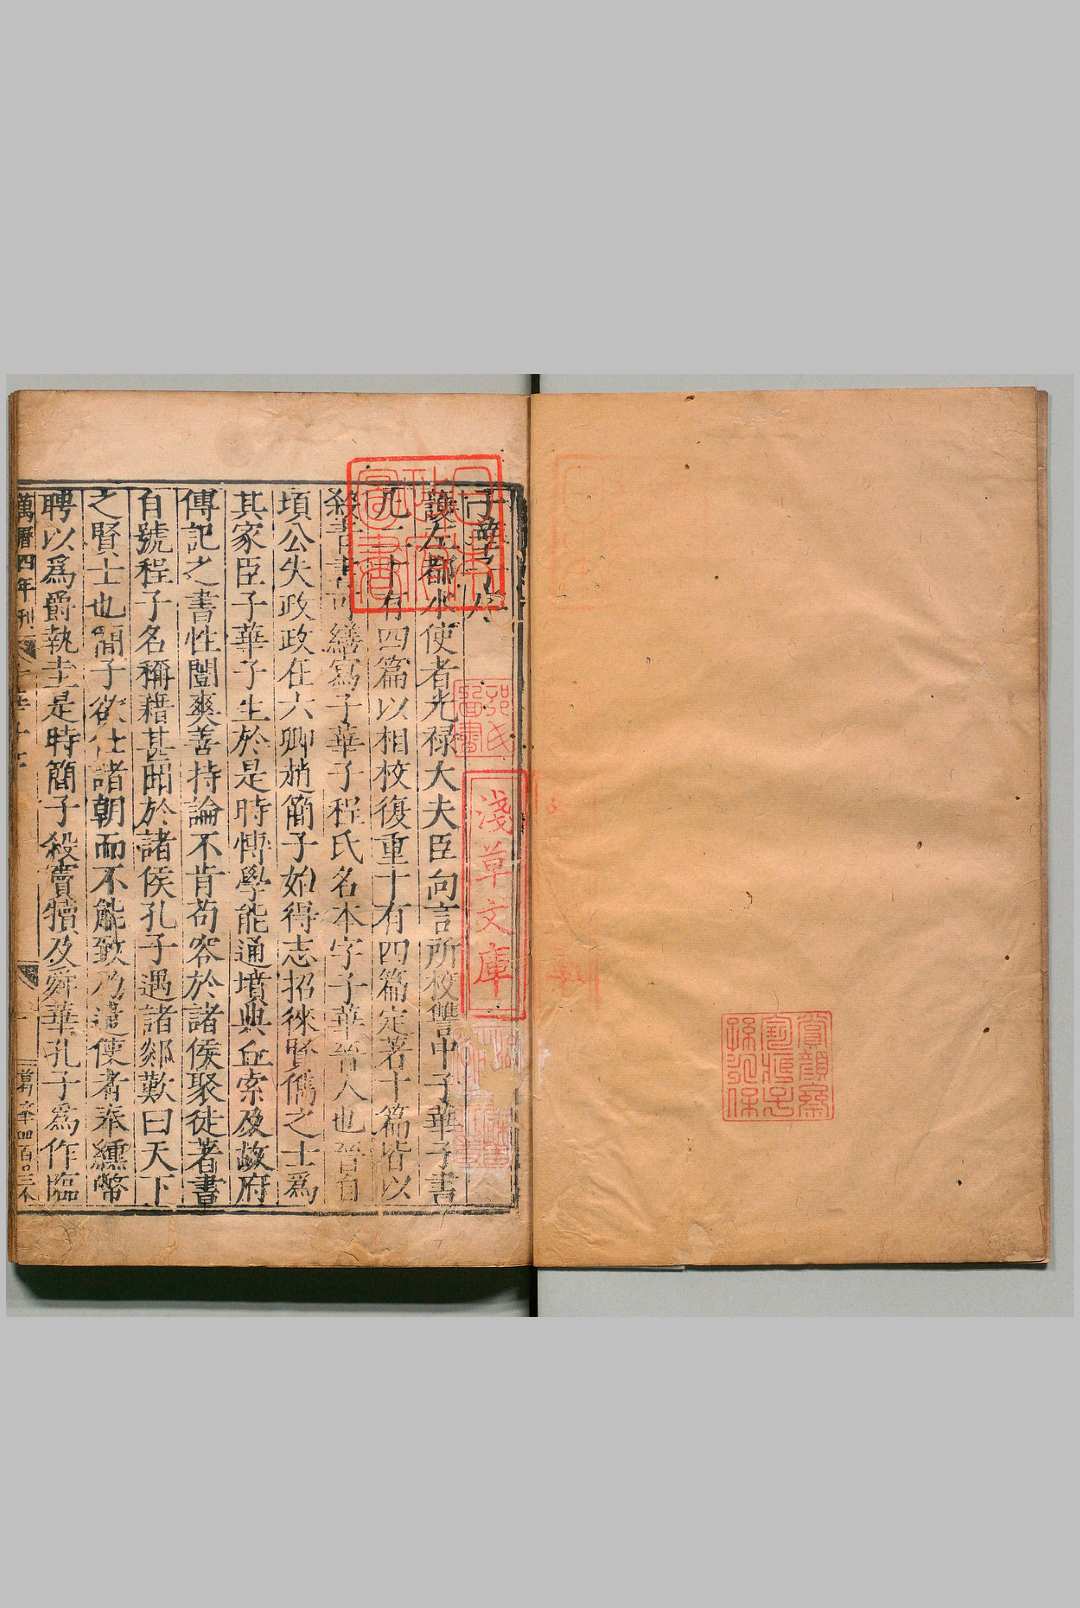 子華子序
護左都水使者光祿大夫臣向言所校讐中子華子書
凡二十有四篇以相校復重十有四篇定著十篇皆以
殺青書可繕寫子華子程氏名本字子華晉人也晉自
頃公失政政在六卿趙簡子始得志招徠賢儁之士爲
其家臣子華子生於是時博學能通墳典丘索及故府
傳記之書性闓爽善持論不肯苟容於諸侯聚徒著書
自號程子名稱藉甚聞於諸侯孔子遇諸郯歎曰天下
之賢士也簡子欲仕諸朝而不能致乃遣使者奉纁幣
聘以爲爵執圭是時簡子殺竇犢及舜華孔子爲作臨
萬曆四年刊
淺草文庫
日本政府圖書